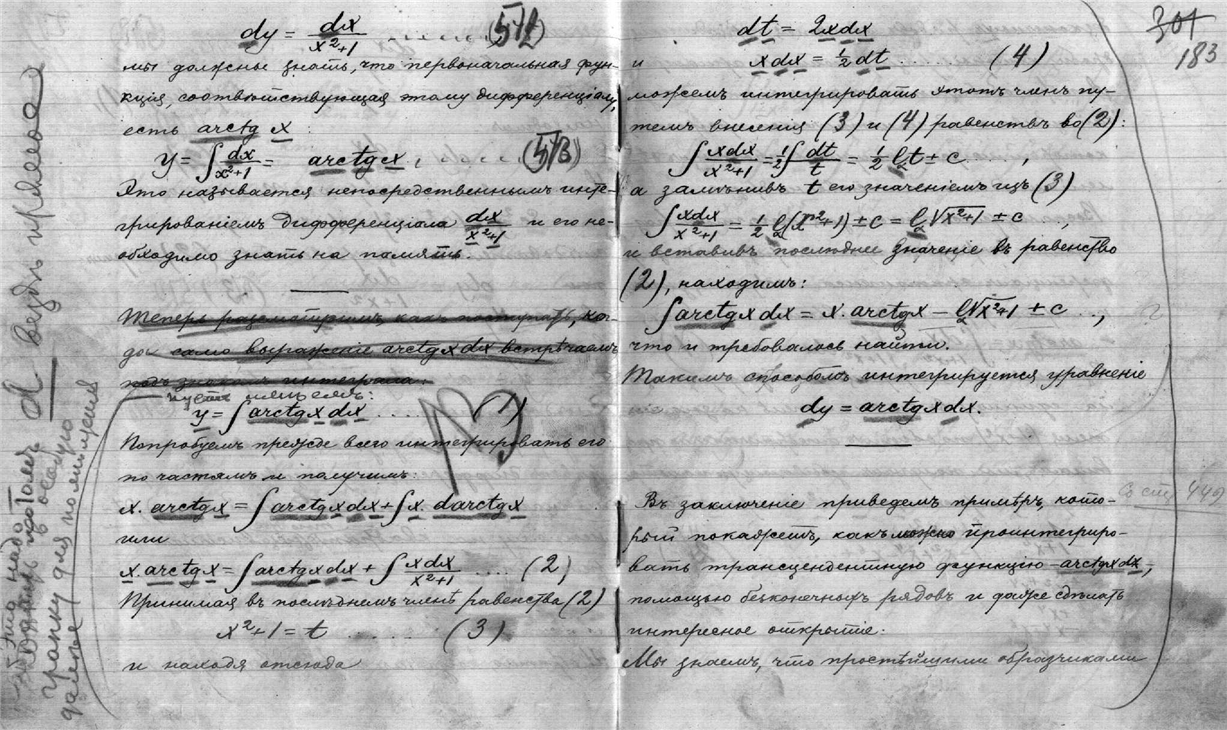 dy = dx/x²+1 ........ (57a)
мы должны знать, что первоначальная фун-
кція, соотвѣтствующая этому дифференціалу,
есть arctg x :
y = ∫ dx/x²+1 = arctg x, (57b)
Это называется непосредственнымъ инте-
грированіемъ дифференціала dx/x²+1 и его не-
обходимо знать на память.
Теперь разсмотримъ, какъ поступать, ко-
гда само выраженіе arctgxdx встрѣчаемъ
подъ знакомъ интеграла.
пусть имѣемъ:
y = ∫ arctgx dx .... 1)
Попробуемъ прежде всего интегрировать его
по частямъ и получимъ:
x. arctgx = ∫ arctgxdx + ∫ x. darctgx
или
x. arctgx = ∫ arctgxdx + ∫ xdx/x²+1 .... (2)
Принимая въ послѣднемъ членѣ равенства (2)
x²+1 = t ........ (3)
и находя отсюда
вездѣ прямое
d
это надо
дальше
301
183
dt = 2xdx
и xdx = ½ dt ..... (4)
можемъ интегрировать этотъ членъ пу-
темъ внесенія (3) и (4) равенствъ во (2):
∫ xdx/x²+1 = ½ ∫ dt/t = ½ lt ± c ...,
а замѣнивъ t его значеніемъ изъ (3)
∫ xdx/x²+1 = ½ l(x²+1) ± c = l√x²+1 ± c ..,
и вставивъ послѣднее значеніе въ равенство
(2), находимъ:
∫ arctgxdx = x. arctgx − l√x²+1 ± c ..,
что и требовалось найти.
Такимъ способомъ интегрируется уравненіе
dy = arctgxdx.
Въ заключеніе приведемъ примѣръ, кото-
рый покажетъ, какъ можно проинтегриро-
вать трансцендентную функцію arctgxdx,
помощью безконечныхъ рядовъ и даже сдѣлать
интересное открытіе:
Мы знаемъ, что простѣйшими образчиками
449